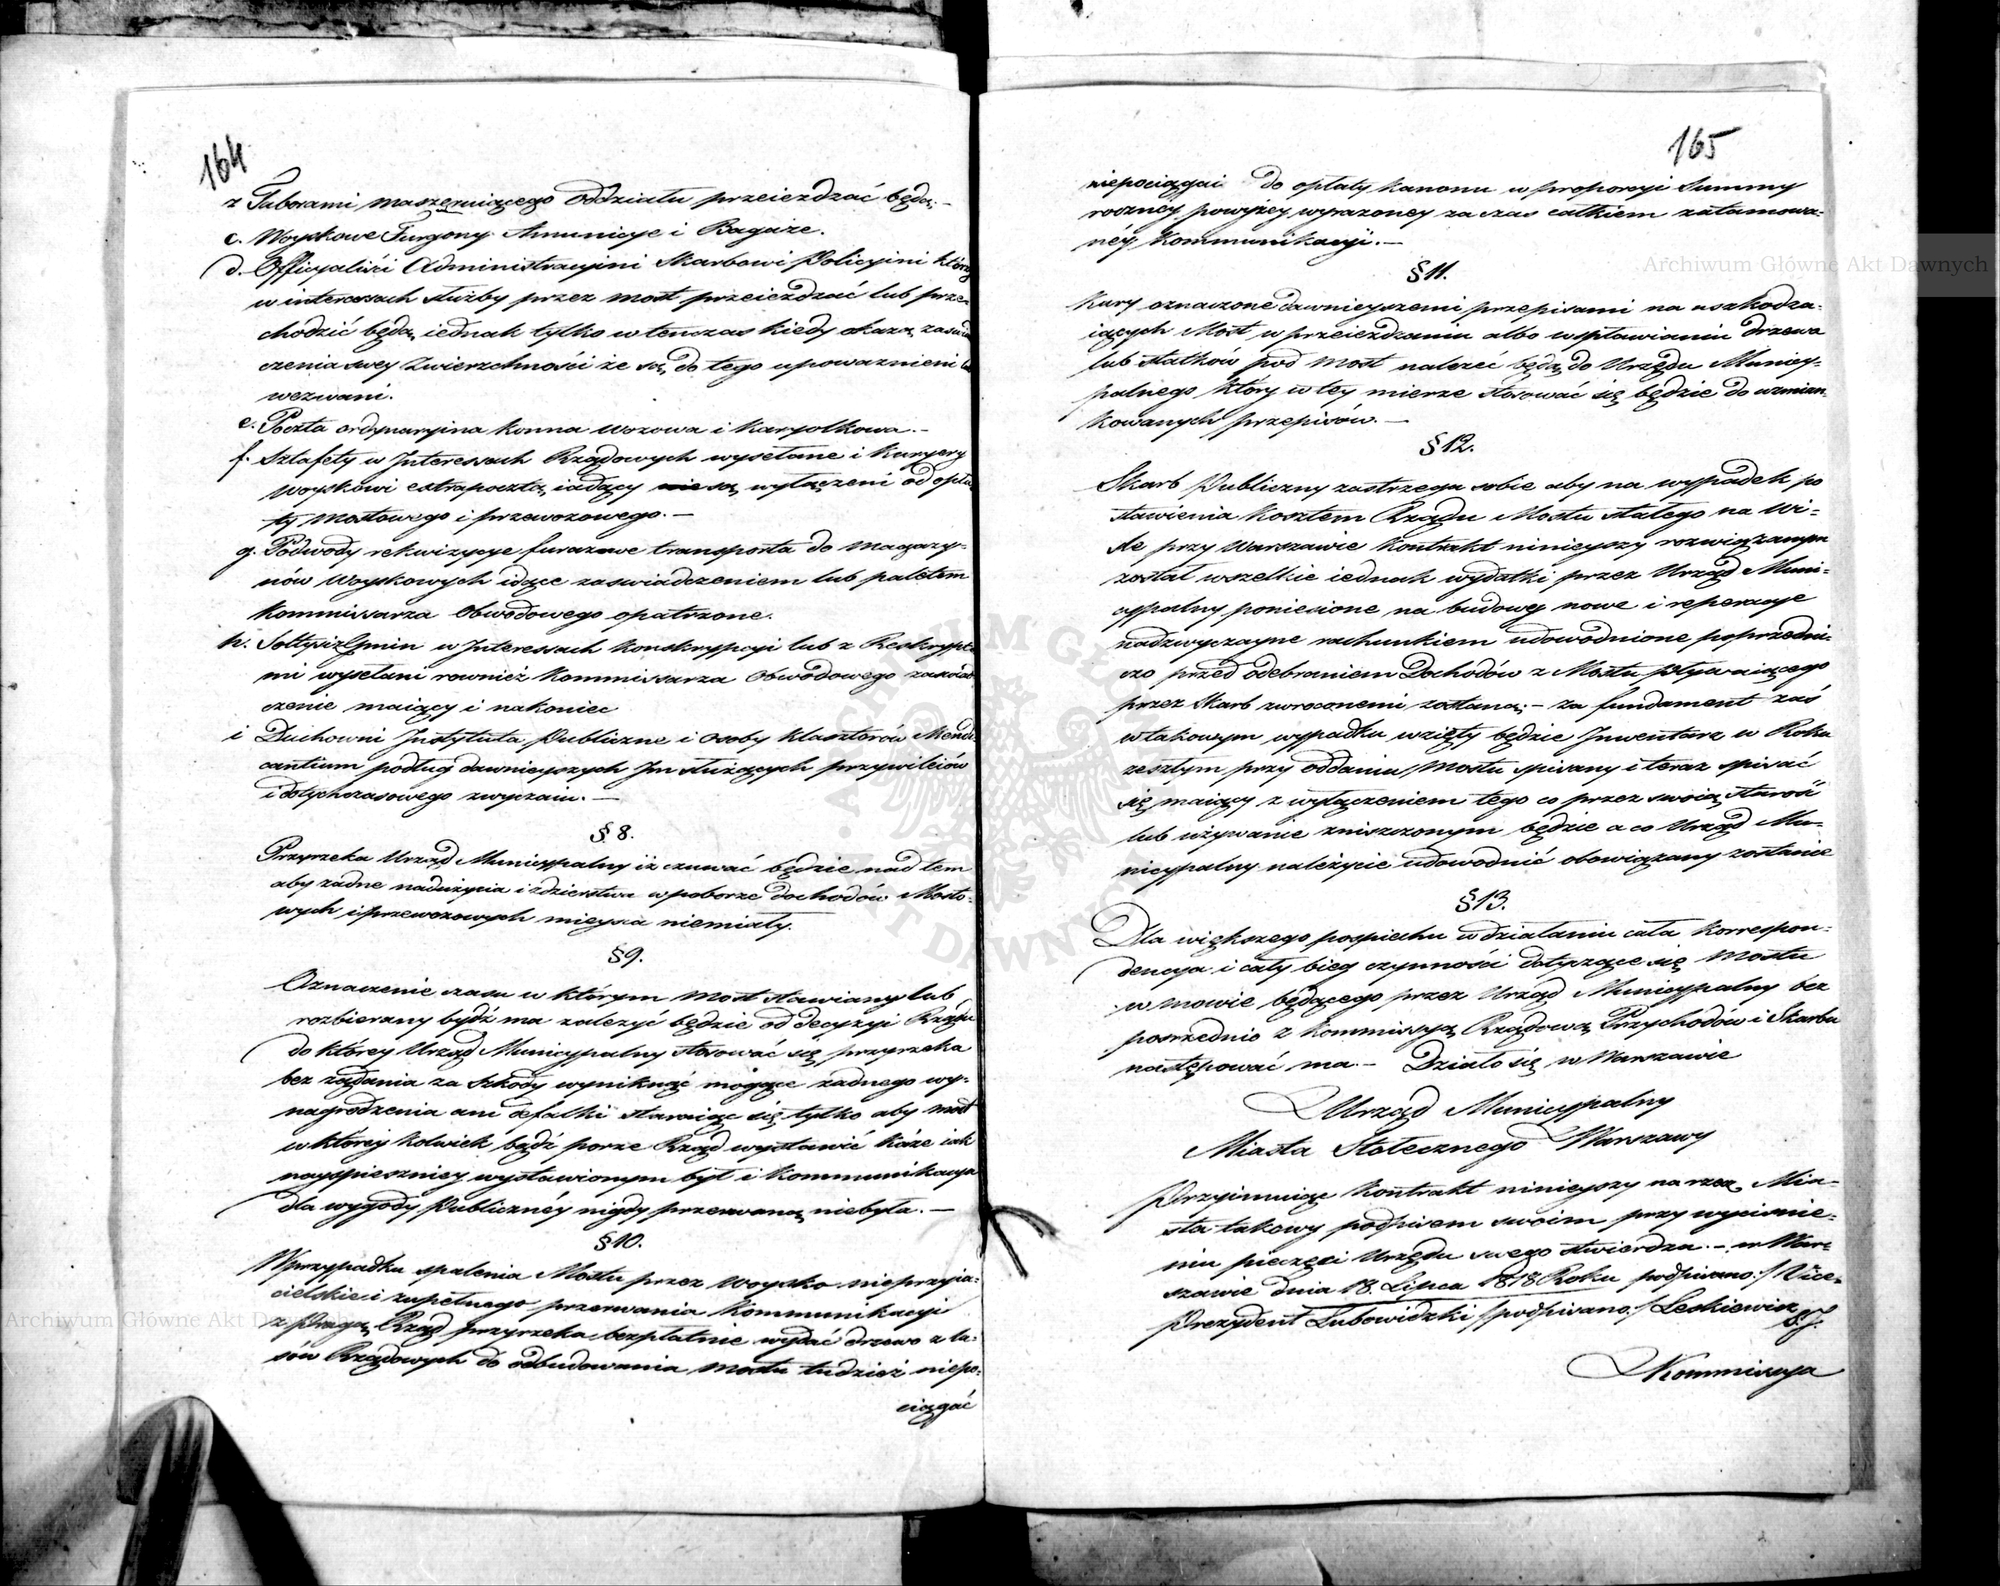 164
z Taborami maszeruiącego oddziału przeieżdzać będą;—
c. Woyskowe Furgony Amunicye i Bagaże.
d. Officyaliści Administracyini Skarbowi Policyini którzy
w interessach służby przez most przeieżdzać lub prze-
chodzić będą, iednak tylko w tenczas kiedy okażą zaświad
czenia swey Zwierzchności że są do tego upoważnieni lub
wezwani.
e. Poczta ordynaryina konna wozowa i karyolkowa.—
f. Sztafety w Interessach Rządowych wysełane i kuryery
woyskowi extrapocztą iadący są wyłączeni od opła
ty mostowego i przewozowego.—
g. Podwody rekwizycye furażowe transporta do magazy-
nów woyskowych idące zaświadczeniem lub paletem
kommissarza obwodowego opatrzone.
h. Sołtysi z Gmin w Interessach konskrypcyi lub z Reskrypta
mi wysełani rownież kommissarza obwodowego zaświad
czenie maiący i nakoniec
i Duchowni Instytuta Publiczne i osoby klasztorów Mendi
cantium podług dawnieyszych Im służących przywileiów
i dotychczasowego zwyczaiu.—
§ 8.
Przyrzeka Urząd Municypalny iż czuwać będzie nad tem
aby żadne nadużycia i zdzierstwa w poborze dochodów Mosto-
wych i przewozowych mieysca niemiały.
§ 9.
Oznaczenie czasu w którym most stawiany lub
rozbierany bydź ma zależyć będzie od decyzyi Rządu
do którey Urząd Municypalny stosować się przyrzeka
bez żądania za szkody wyniknąć mogące żadnego wy-
nagrodzenia ani defalki staraiąc się tylko aby most
w którey kolwiek bądź porze Rząd wystawić każe iak
nayspieszniey wystawionym był i kommunikacya
dla wygody Publiczney nigdy przerwaną niebyła.—
§ 10.
W przypadku spalenia Mostu przez woysko nieprzyia-
cielskie i zupełnego przerwania kommunikacyi
z Pragą, Rząd przyrzeka bezpłatnie wydać drzewo z la-
sów Rządowych do odbudowania mostu tudzież niepo-
ciągać
165
niepociągai do opłaty kanonu w proporcyi Summy
roczney powyżey wyrażoney za czas całkiem zatamowa-
néy kommunikacyi.—
§ 11.
Kary oznaczone dawnieyszemi przepisami na uszkodza-
iących Most w przeieżdzaniu albo w spławianiu drzewa
lub statków pod most należeć będą do Urzędu Municy-
palnego który w tey mierze stosować się będzie do wzmian-
kowanych przepisów.—
§ 12.
Skarb Publiczny zastrzega sobie aby na wypadek po
stawienia kosztem Rządu Mostu stałego na Wi-
śle przy Warszawie kontrakt ninieyszy rozwiązanym
został wszelkie iednak wydatki przez Urząd Muni-
cypalny poniesione na budowy nowe i reperacye
nadzwyczayne rachunkiem udowodnione poprzedni-
czo przed odebraniem Dochodów z Mostu pływaiącego
przez Skarb zwroconemi zostaną;— za fundament zaś
w takowym wypadku wzięty będzie Inwentarz w Roku
zeszłym przy oddaniu Mostu spisany i teraz spisać
się maiący z wyłączeniem tego co przez swoią starość
lub używanie zniszczonym będzie a co Urząd Mu-
nicypalny należycie udowodnić obowiązany zostanie
§ 13.
Dla większego pospiechu w działaniu cała korrespon-
dencya i cały bieg czynności dotyczące się Mostu
w mowie będącego przez Urząd Municypalny bez
pośrednio z Kommissyą Rządową Przychodów i Skarbu
następować ma.— Działo się w Warszawie
Urząd Municypalny
Miasta Stołecznego Warszawy
Przyimuiąc kontrakt ninieyszy na rzecz Mia-
sta takowy podpisem swoim przy wyciśnie-
niu pieczęci Urzędu swego stwierdza.— w War-
szawie dnia 18. Lipca 1818 Roku podpisano:/ Vice-
Prezydent Lubowidzki /podpisano:/ Leśkiewicz
S.J.
Kommissya
Archiwum Główne Akt Dawnych
Archiwum Główne Akt Dawnych
ARCHIWUM GŁÓWNE AKT DAWNYCH